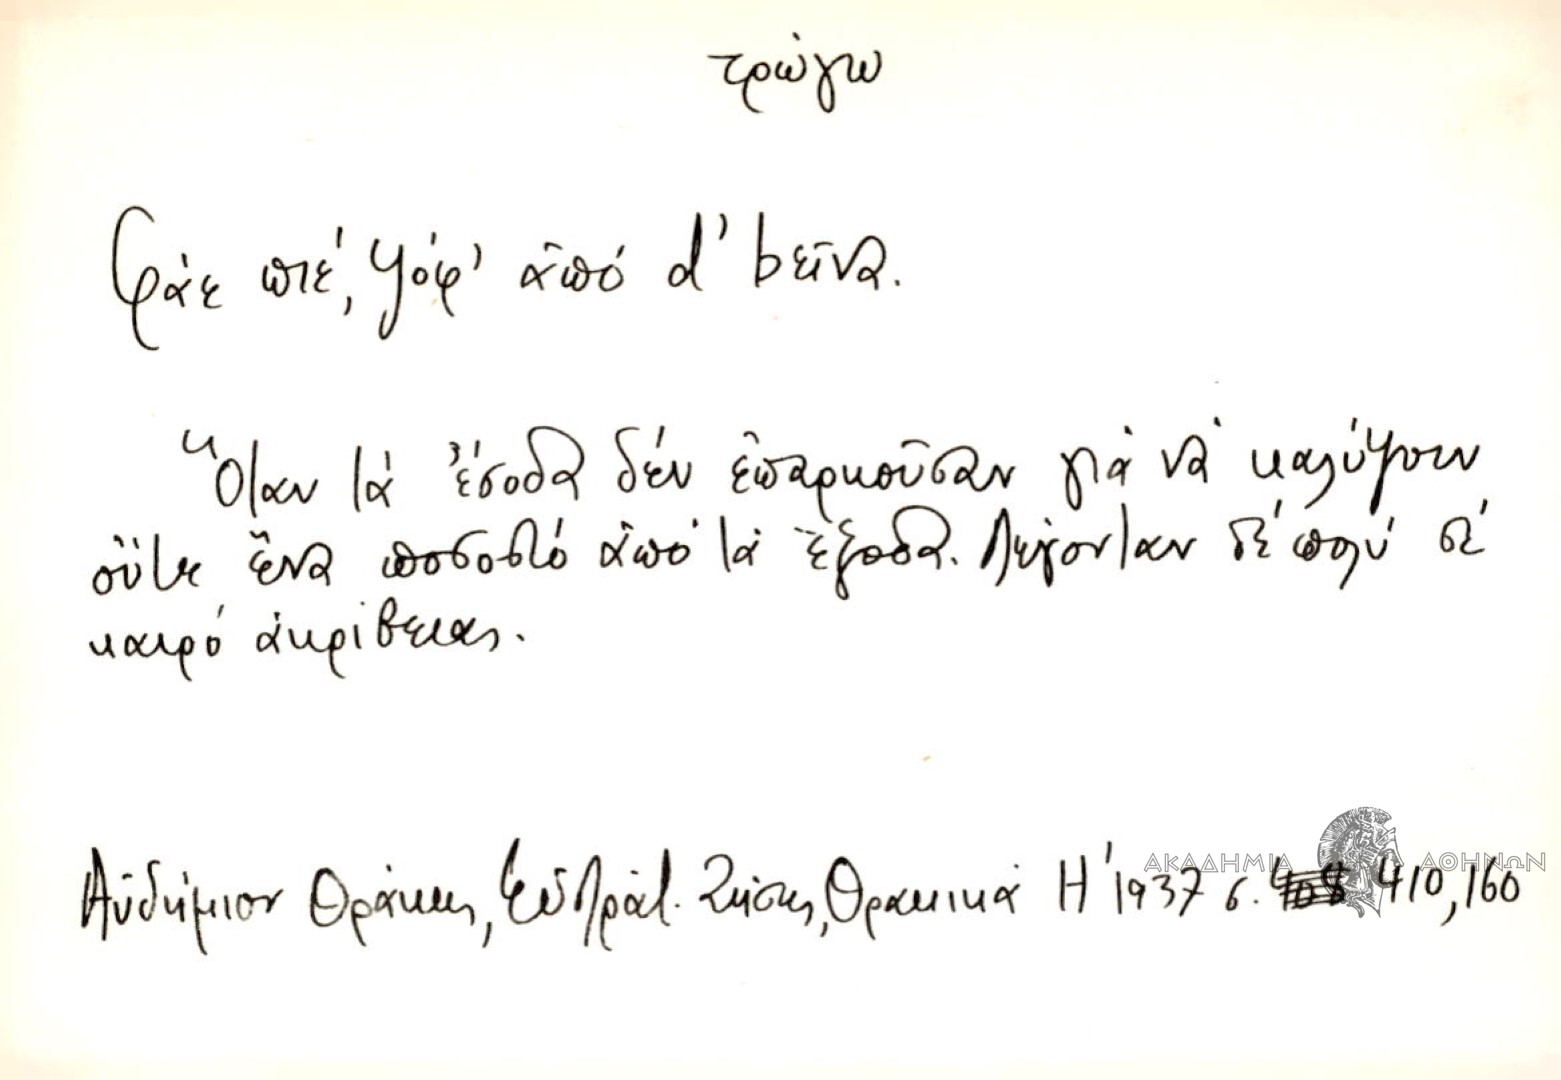 τρώγω
Φάε πιέ, ψόφ' ἀπό d' bεῖνα.
Ὅταν τά ἔσοδα δέν ἐπαρκοῦσαν γιά νά καλύψουν
οὔτε ἕνα ποσοστό ἀπό τά ἔξοδα. Λέγονταν δέ πολύ σέ
καιρό ἀκρίβειας.
Αὐδήμιον Θράκης, Εὐστράτ. Ζήσης, Θρακικά Η' 1937 σ. 410, 160
ΑΚΑΔΗΜΙΑ ΑΘΗΝΩΝ